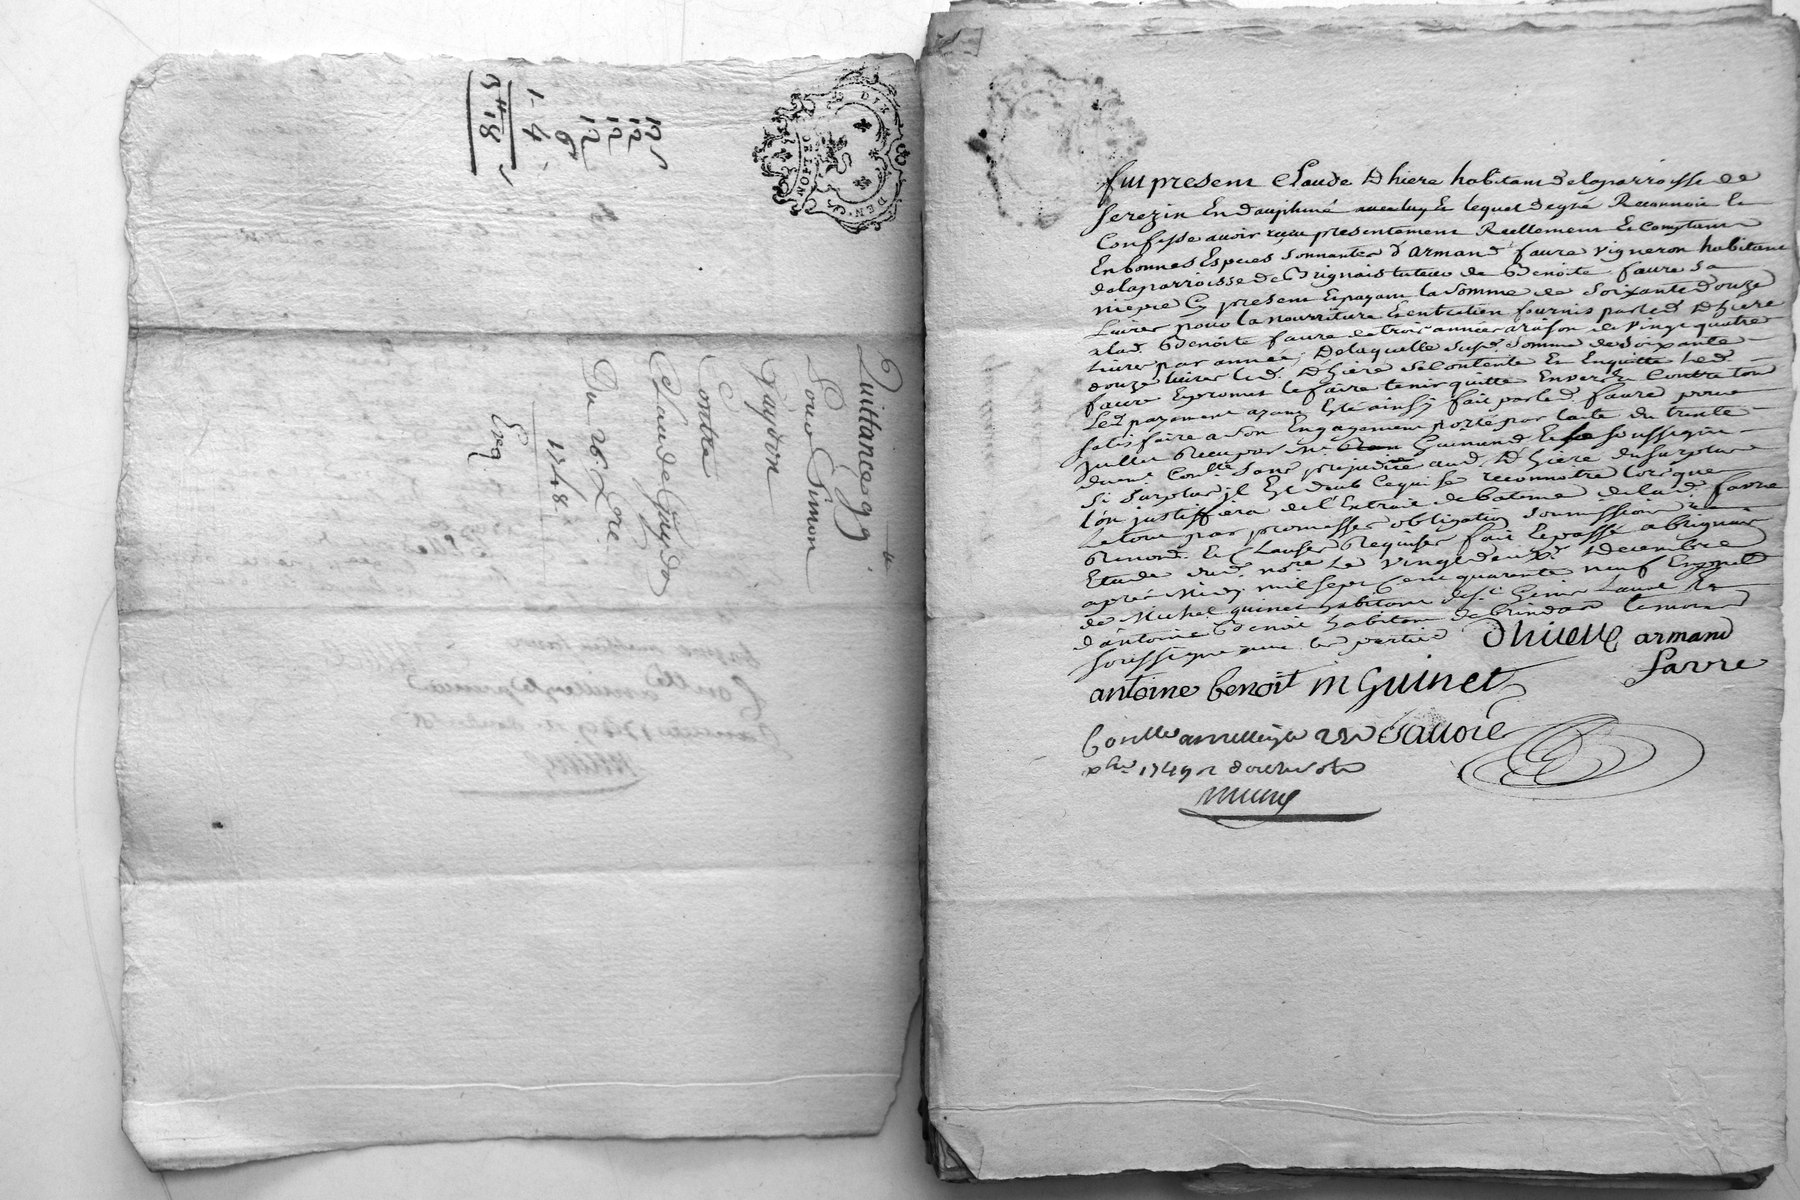 GN. DE LYON
DIX DEN.
Quittance gg.le
Pour Simon
Gaydon
Contre
Claude Guydo
Du 26. Xbre
1748.
Exg
12
12
12
6
1-4
3"18
fut present Claude Dhiere habitant de la parroisse de
Serezin En dauphiné avec luy Et lequel de gré Reconnoit Et
Confesse avoir reçu presentement Reellement Et Comptant
En bonnes Especes Sonnantes d'armand faure vigneron habitant
de la parroisse de Brignais tuteur de Benoite faure Sa
niepce Cy present Et payant la Somme de Soixante douze
Livres pour la nourriture Et entretien fournis par led. Dhiere
a lad. Benoite faure de trois années a raison de vingt quatre
Livres par année, De laquelle susd. Somme de Soixante
douze livres led. Dhiere Se Contente Et En quitte led.
faure Et promet le faire tenir quitte Envers Et Contre tous
Led. payement ayant Eté ainsy fait par led. faure pour
Satisfaire a Son Engagement porté par l'acte du trente
juillet Reçu par Me Guimand Et Soussigné
duem. Conllé Sans prejudice aud. Dhiere du Surplus
Si Surplus il Est deub Ce qui se reconnoitra lorsque
l'on justiffiera de l'Extrait de bateme de lad. faure
Le tout par promesses obligation Soumission
Renond. Et Clauses Requises fait Et passé a Brignais
Etude dud. nore Le vingt deux Decembre
aprés Midy mil Sept Cent quarante neuf En presence
de Michel guinet habitant de St Genis Laval Et
d'antoine Benoit habitant de Brindas temoins
Soussigné avec les parties Dhiere armand
favre
antoine benoit m Guinet
Conllé a 22 Savoie
xbre 1749 R douze sols